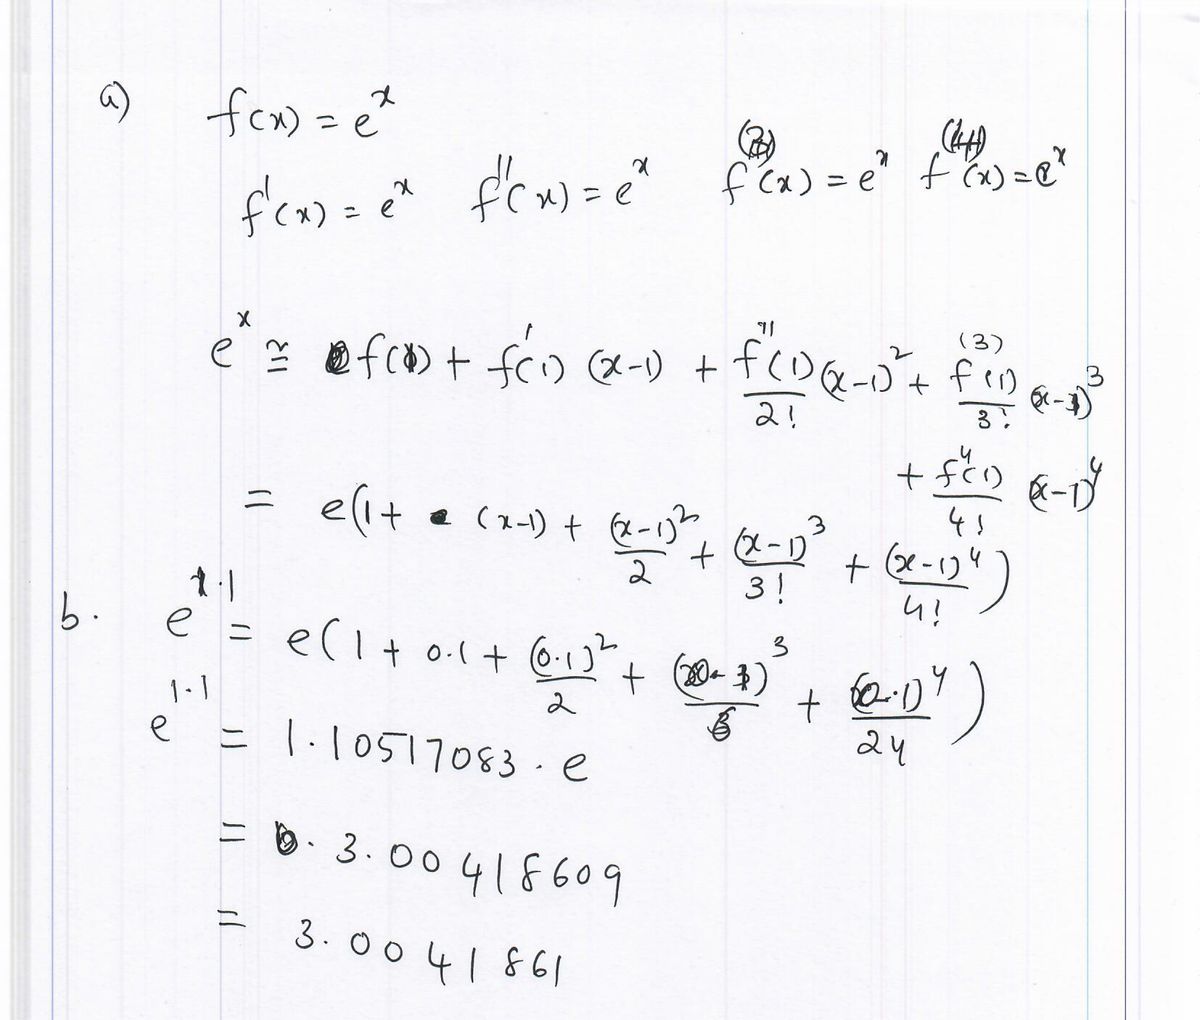 a) f(x) = e^x
f'(x) = e^x f''(x) = e^x f^(3)(x) = e^x f^(4)(x) = e^x
e^x ≅ f(1) + f'(1) (x-1) + f''(1)/2! (x-1)^2 + f^(3)(1)/3! (x-1)^3
+ f^4(1)/4! (x-1)^4
= e(1 + (x-1) + (x-1)^2/2 + (x-1)^3/3! + (x-1)^4/4!)
b. e^1.1 = e(1 + 0.1 + (0.1)^2/2 + (0.1)^3/6 + (0.1)^4/24)
e^1.1 = 1.10517083 . e
= 3.00418609
= 3.0041861